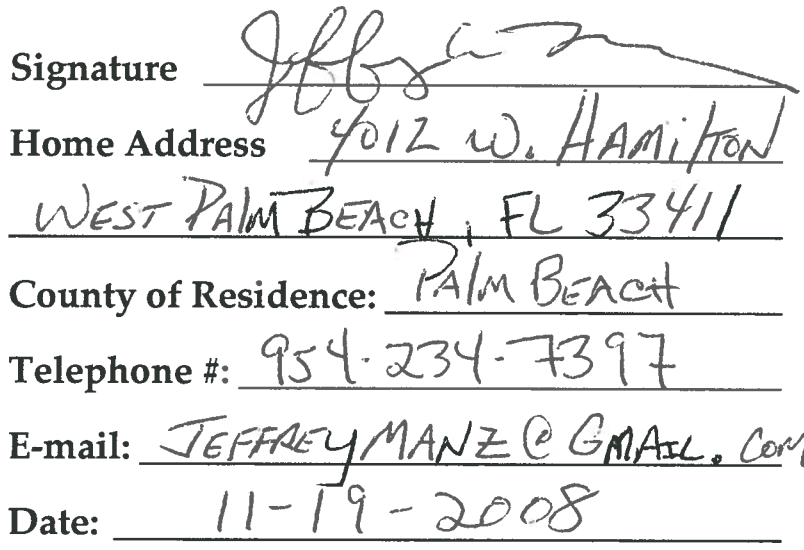 Signature
Home Address 4012 W. HAMilTON
WEST PAlM BEACH, FL 33411
County of Residence: PAlM BEACH
Telephone #: 954-234-7397
E-mail: JEFFREYMANZ@GMAIL.COM
Date: 11-19-2008